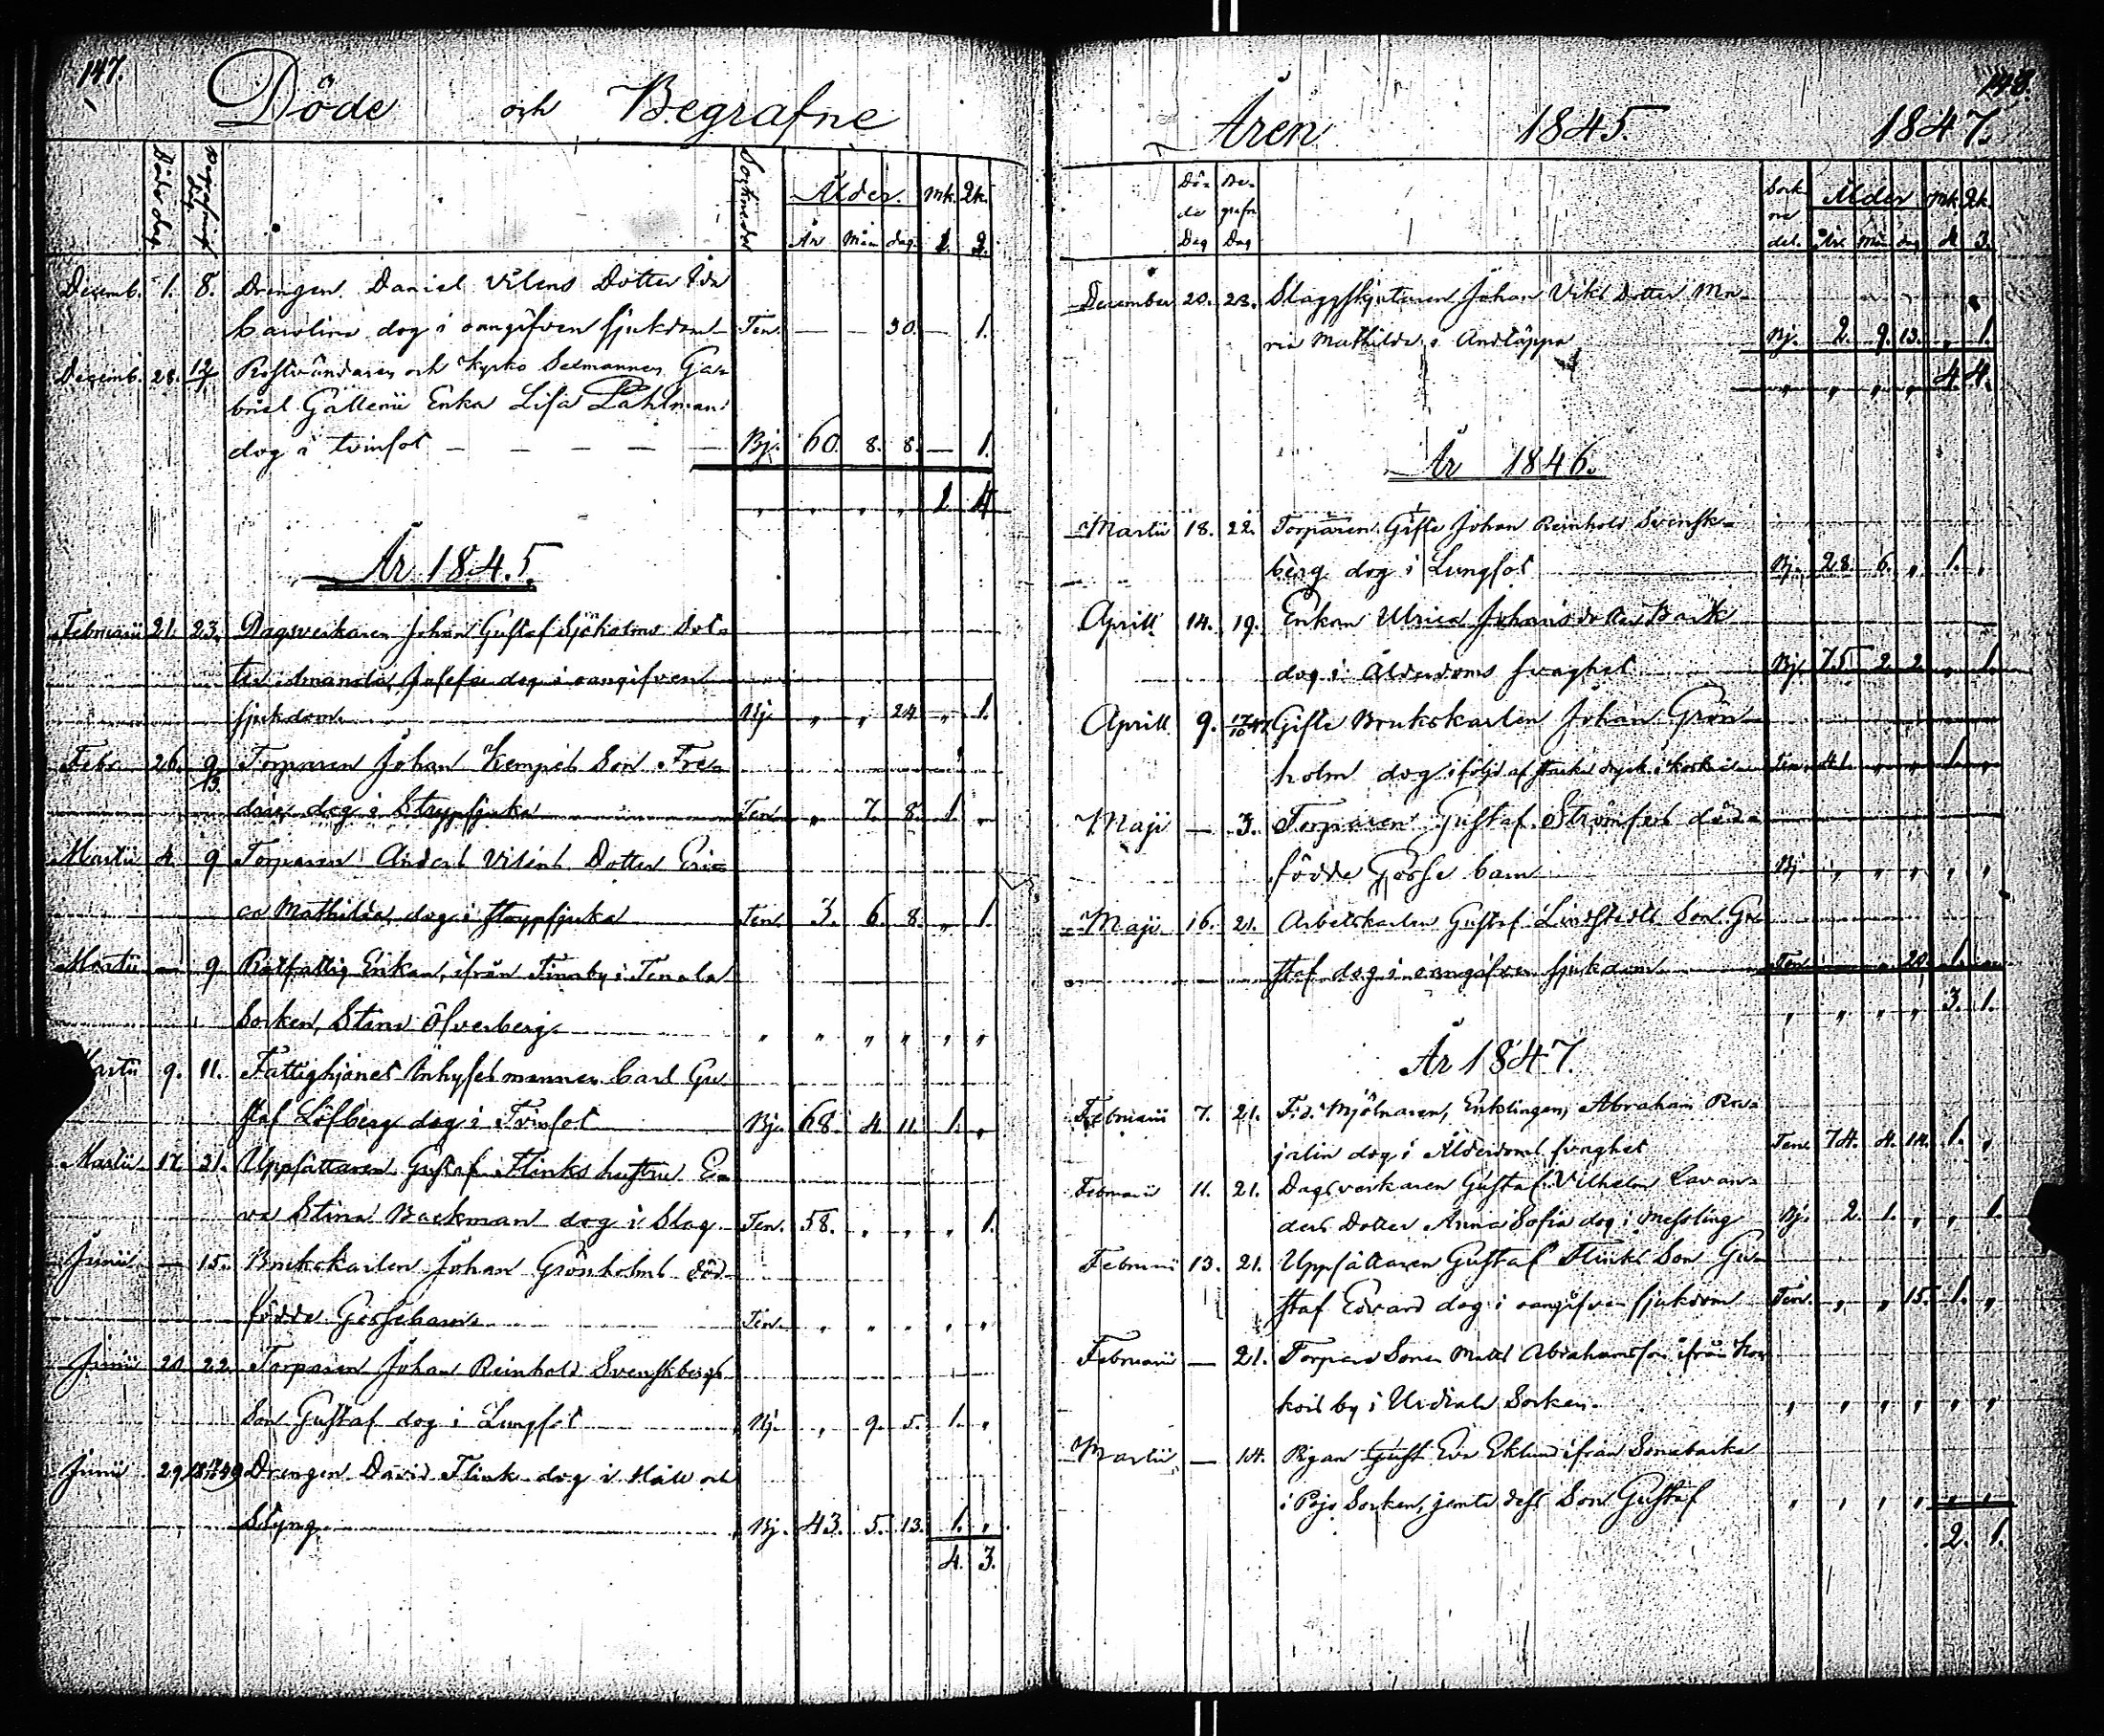 147.
Döde och Begrafne
Döde dag Begrafnings dag Socknedel Ålder. Mk. Qk.
År Mån dag. 1. 3.
Decemb. 1. 8. Drengen Daniel Viléns Dotter Ida
Carolina dog i oangifven sjukdom Ten. — — 30. — 1.
Decemb. 28. 12/1 Rostvändaren och Kyrko Sexmannen Ga-
briel Gallenii Enka Lisa Pahlman
dog i tvinsot — — — — — Bj. 60. 8. 8. — 1.
" " " " 1 4
År 1845.
Februarii 21. 23. Dagsverkaren Johan Gustaf Sjöholms Dot-
ter Amanda Josefa dog i oangifven
sjukdom Bj. " " 24. " 1.
Febr. 26. 9/3. Torparen Johan Kempes Son Fre-
dric dog i Strypsjuka Ten. " 7. 8. 1. "
Martii 4. 9 Torparen Anders Viléns Dotter Eri-
ca Mathilda dog i strypsjuka Ten. 3. 6. 8. " 1.
Martii — 9 Rotfattig Enkan, ifrån Finnby i Tenala
Socken, Stina Öfverberg " " " " " "
Martii 9. 11. Fattighjonet Inhyses mannen Carl Gu-
staf Löfberg dog i Tvinsot Bj. 68. 4. 11. 1. "
Martii 17. 21. Uppsättaren Gustaf Flinks hustru E-
va Stina Backman dog i Slag Ten. 58. " " " 1.
Junii — 15. Brukskarlen Johan Grönholms död-
födde Gossebarn Ten. " " " " "
Junii 20. 22. Torparen Johan Reinhold Svenskbergs
Son Gustaf dog i Lungsot Bj. " 9. 5. 1. "
Junii 29. Drengen David Flink dog i Håll och
Styng Bj. 43. 5. 13. 1. "
4. 3.
148.
Åren 1845. 1847.
Dö- Be- Sock- Ålder Mk. Qk.
de grafn ne
Dag Dag del. År. Mån dag 4 3.
December 20. 23. Slaggskjutaren Johan Viks Dotter Ma-
ria Mathilda i Andtäppa Bj. 2. 9. 13. " 1.
" " " " 4. 4.
År 1846.
Martii 18. 22. Torparen Gifte Johan Reinhold Svensk-
berg dog i Lungsot Bj. 28. 6. " 1. "
Aprill 14. 19. Enkan Ulrica Johansdotter Bask
dog i Ålderdoms svaghet Bj. 75 2. 2. " 1.
Aprill 9. Gifte Brukskarlen Johan Grön-
holm dog i följd af starka dryck Ten. 41. " " 1. "
Maji — 3. Torparen Gustaf Strömfors död-
födde Gosse barn Bj. " " " " "
Maji 16. 21. Arbetskarlen Gustaf Lindstedts Son Gu-
staf dog i oangifven sjukdom Ten. " " 20. 1. "
" " " " 3. 1.
År 1847.
Februarii 7. 21. F.d. Mjölnaren, Enklingen, Abraham Ra-
jalin dog i Ålderdoms svaghet Ten. 74. 4. 14. 1. "
Februarii 11. 21. Dagsverkaren Gustaf Vilhelm Lavan-
ders Dotter Anna Sofia dog i Messling Bj. 2. 1. " " 1.
Februarii 13. 21. Uppsättaren Gustaf Flinks Son Gu-
staf Edvard dog i oangifven sjukdom Ten. " " 15. 1. "
Februarii — 21. Torpare Sonen Matts Abrahamsson ifrån Kos-
kois by i Urdiala Socken. " " " " " "
Martii — 14. Pigan Eva Eklund ifrån Sonabacka
i Pojo Socken, jemte dess Son Gustaf " " " " " "
2. 1.